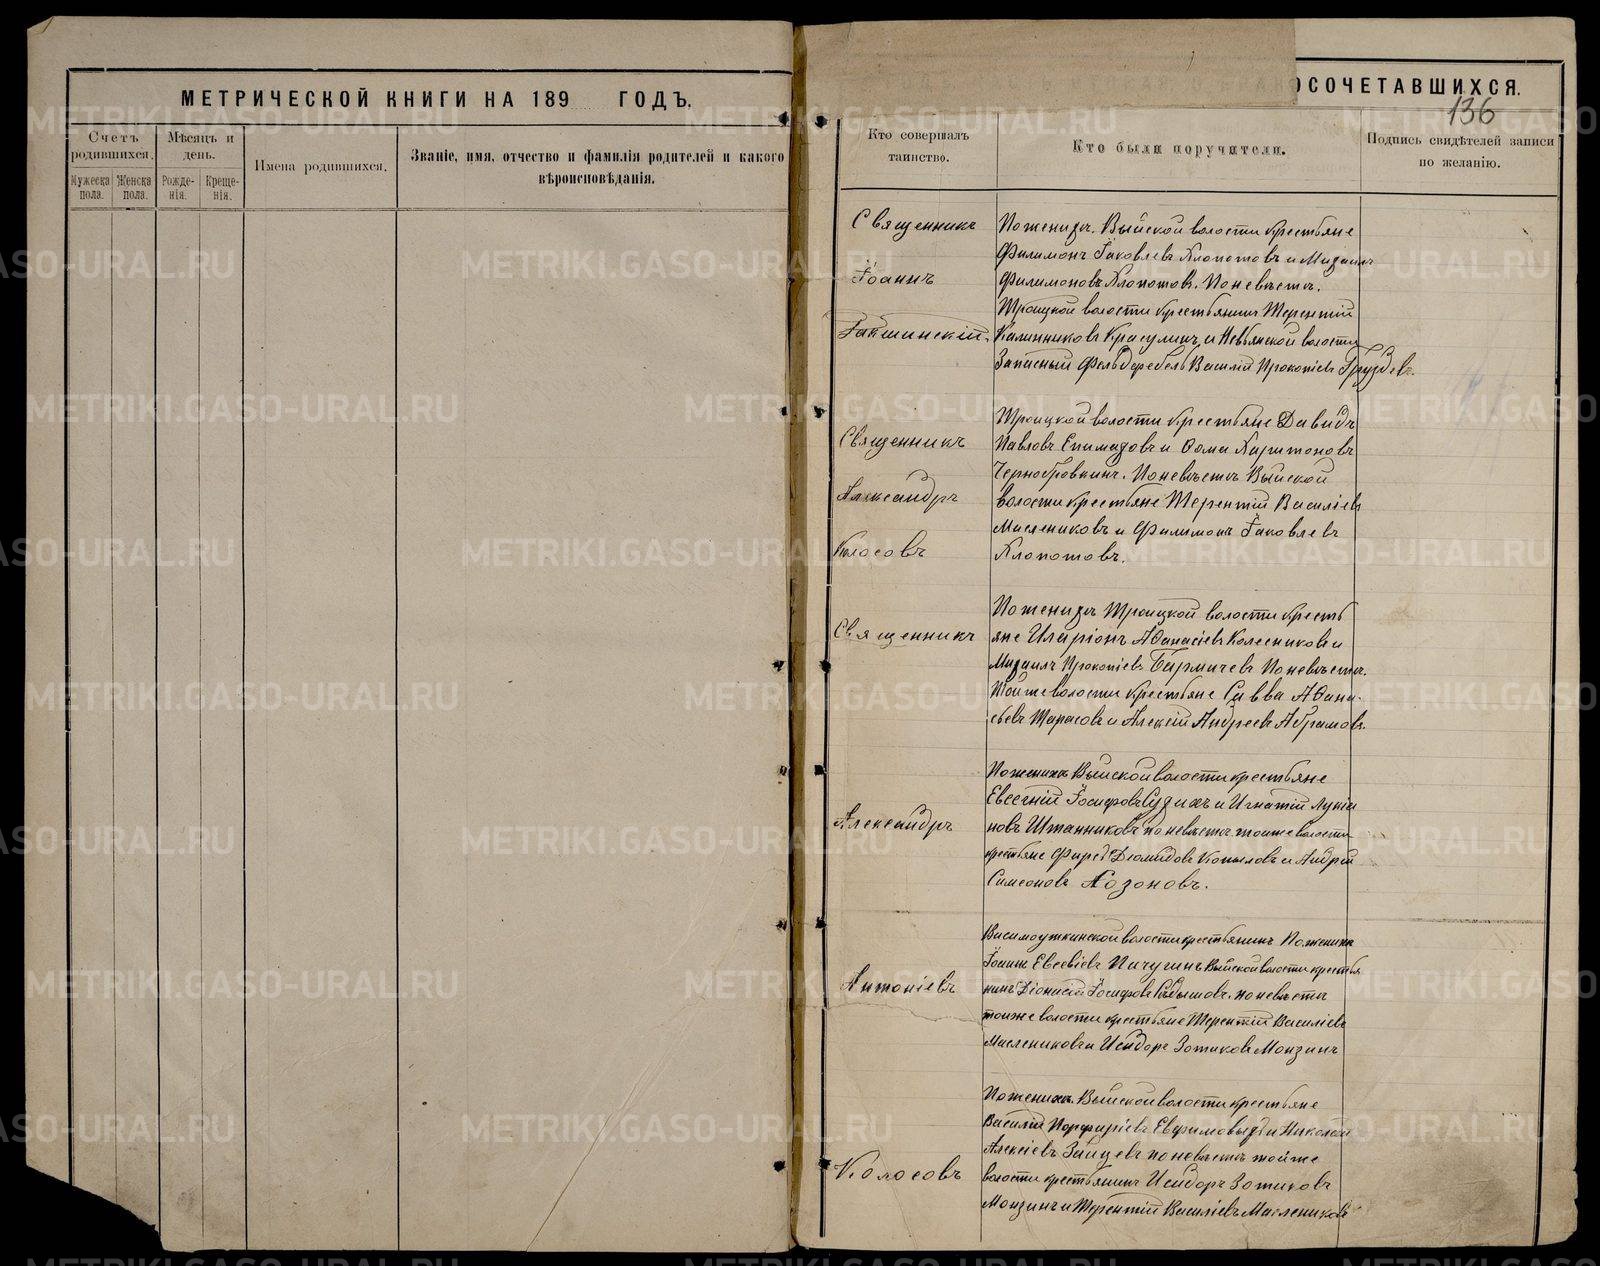 МЕТРИЧЕСКОЙ КНИГИ НА 189 ГОДЪ.
Счетъ родившихся.
Мужеска пола.
Женска пола.
Мѣсяцъ и день.
Рожде-
нія.
Креще-
нія.
Имена родившихся.
Званіе, имя, отчество и фамилія родителей и какого
вѣроисповѣданія.
ОСОЧЕТАВШИХСЯ.
136
Кто совершалъ
таинство.
Кто были поручители.
Подпись свидѣтелей записи
по желанію.
Священникъ
Іоаннъ
Гакшинскій.
По женихѣ. Выйской волости крестьяне
Филимонъ Іаковлевъ Клопотовъ и Михаилъ
Филимоновъ Клопотовъ. По невѣстѣ.
Троицкой волости крестьянинъ Терентій
Калинниковъ Красулинъ и Невьянской волости
Запасный Фельдфебель Василій Прокопіевъ Груздевъ.
Священникъ
Александръ
Колосовъ
Троицкой волости крестьяне Давидъ
Павловъ Епимаховъ и Ѳома Харитоновъ
Чернобровкинъ. По невѣстѣ Выйской
волости крестьяне Терентій Василіевъ
Маслениковъ и Филимонъ Іаковлевъ
Клопотовъ.
Священникъ
По женихѣ Троицкой волости кресть
яне Иларіонъ Аѳанасіевъ Колесниковъ и
Михаилъ Прокопіевъ Бармичевъ По невѣстѣ.
Той же волости крестьяне Савва Аѳана-
сьевъ Тарасовъ и Алексій Андреевъ Абрамовъ.
Александръ
По женихѣ Выйской волости крестьяне
Евсегній Іосифовъ Сухихъ и Игнатій Лукія
новъ Штанниковъ по невѣстѣ той же волости
крестьяне Діомидовъ Копыловъ и Андрей
Симеоновъ Хозоновъ.
Антоніевъ
Висимоуткинской волости крестьянинъ По женихѣ
Іоаннъ Евсевіевъ Пичугинъ Выйской волости крестья
нинъ Діонисій Іосифовъ по невѣстѣ
той же волости крестьяне Терентій Василіевъ
Маслениковъ и Исидоръ Зотиковъ Монзинъ
Колосовъ
По женихѣ. Выйской волости крестьяне
Василій Порфиріевъ Евфимовыхъ и Николай
Алексіевъ Зайцевъ по невѣстѣ той же
волости крестьянинъ Исидоръ Зотиковъ
Монзинъ и Терентій Василіевъ Маслениковъ
METRIKI.GASO-URAL.RU